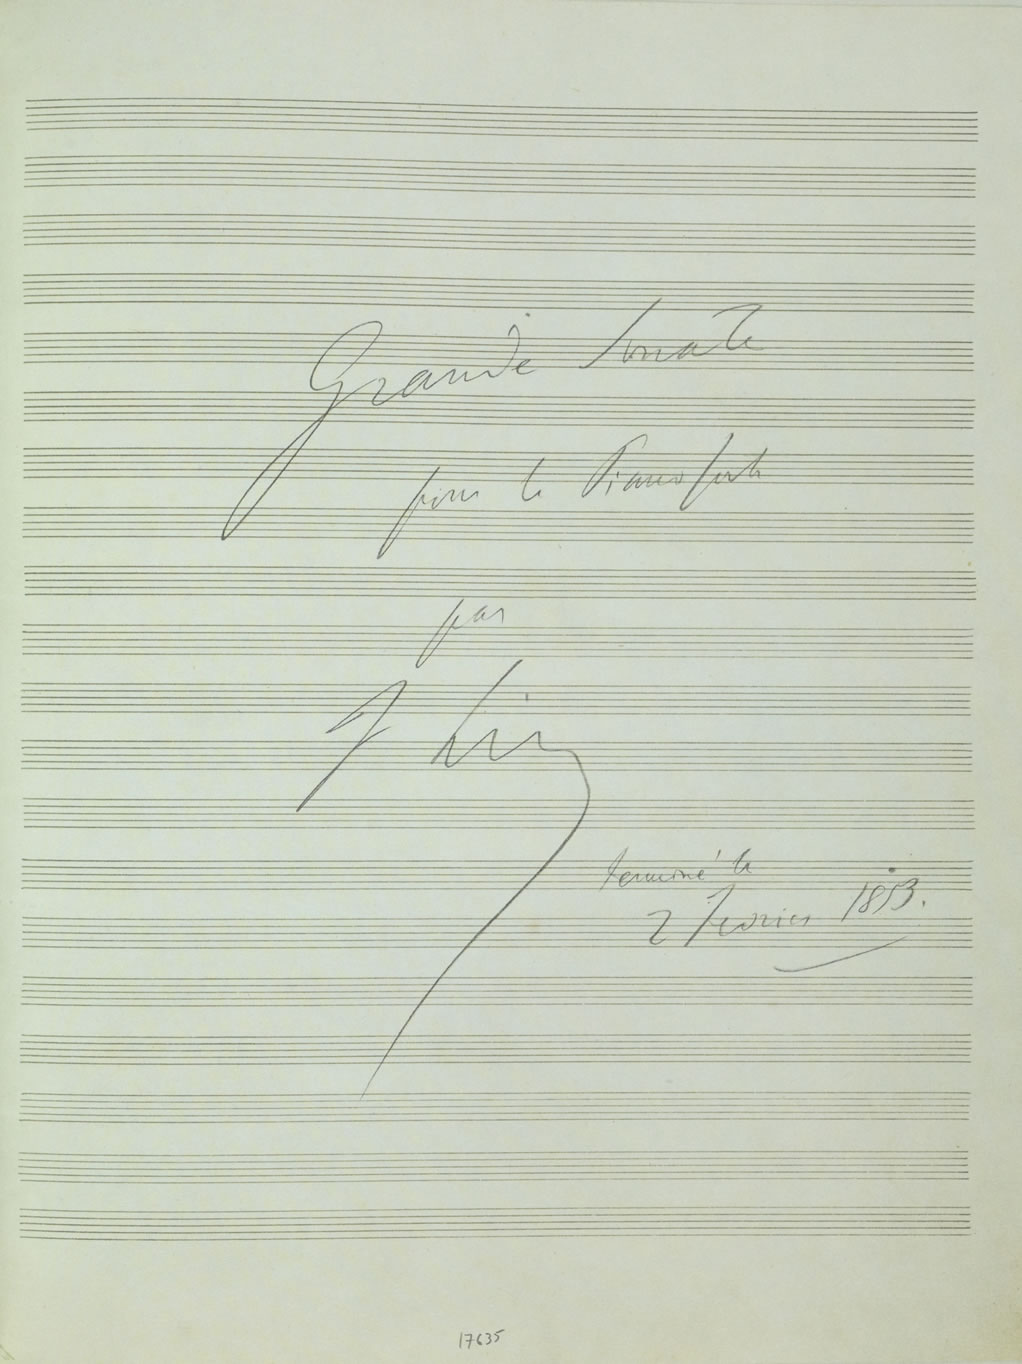 Grande Sonate
pour le Pianoforte
par
F Liszt
terminé le
2 Fevrier 1853.
17635